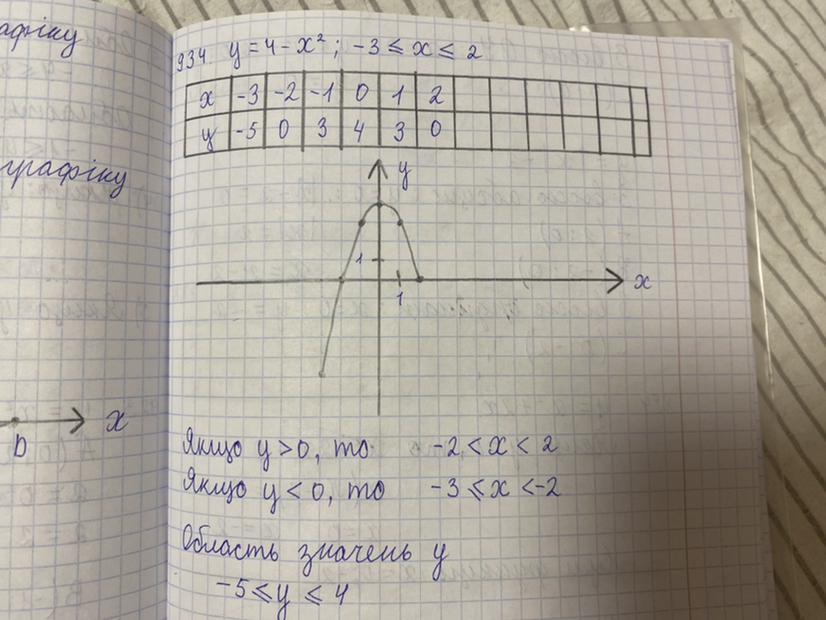 афіку
графіку
x
D
934. y = 4 - x²; -3 ≤ x ≤ 2
x -3 -2 -1 0 1 2
y -5 0 3 4 3 0
y
1
x
1
Якщо y > 0, то -2 < x < 2
Якщо y < 0, то -3 ≤ x < -2
Область значень y
-5 ≤ y ≤ 4